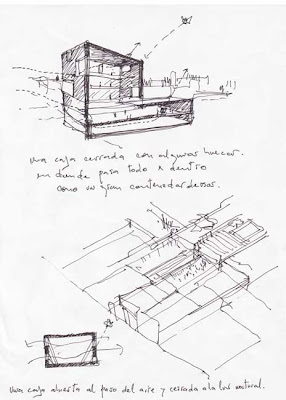 una caja cerrada con algunos huecos.
en donde pasa todo x dentro
como un gran contenedor
una caja abierta al paso del aire y cerrada a la luz natural.